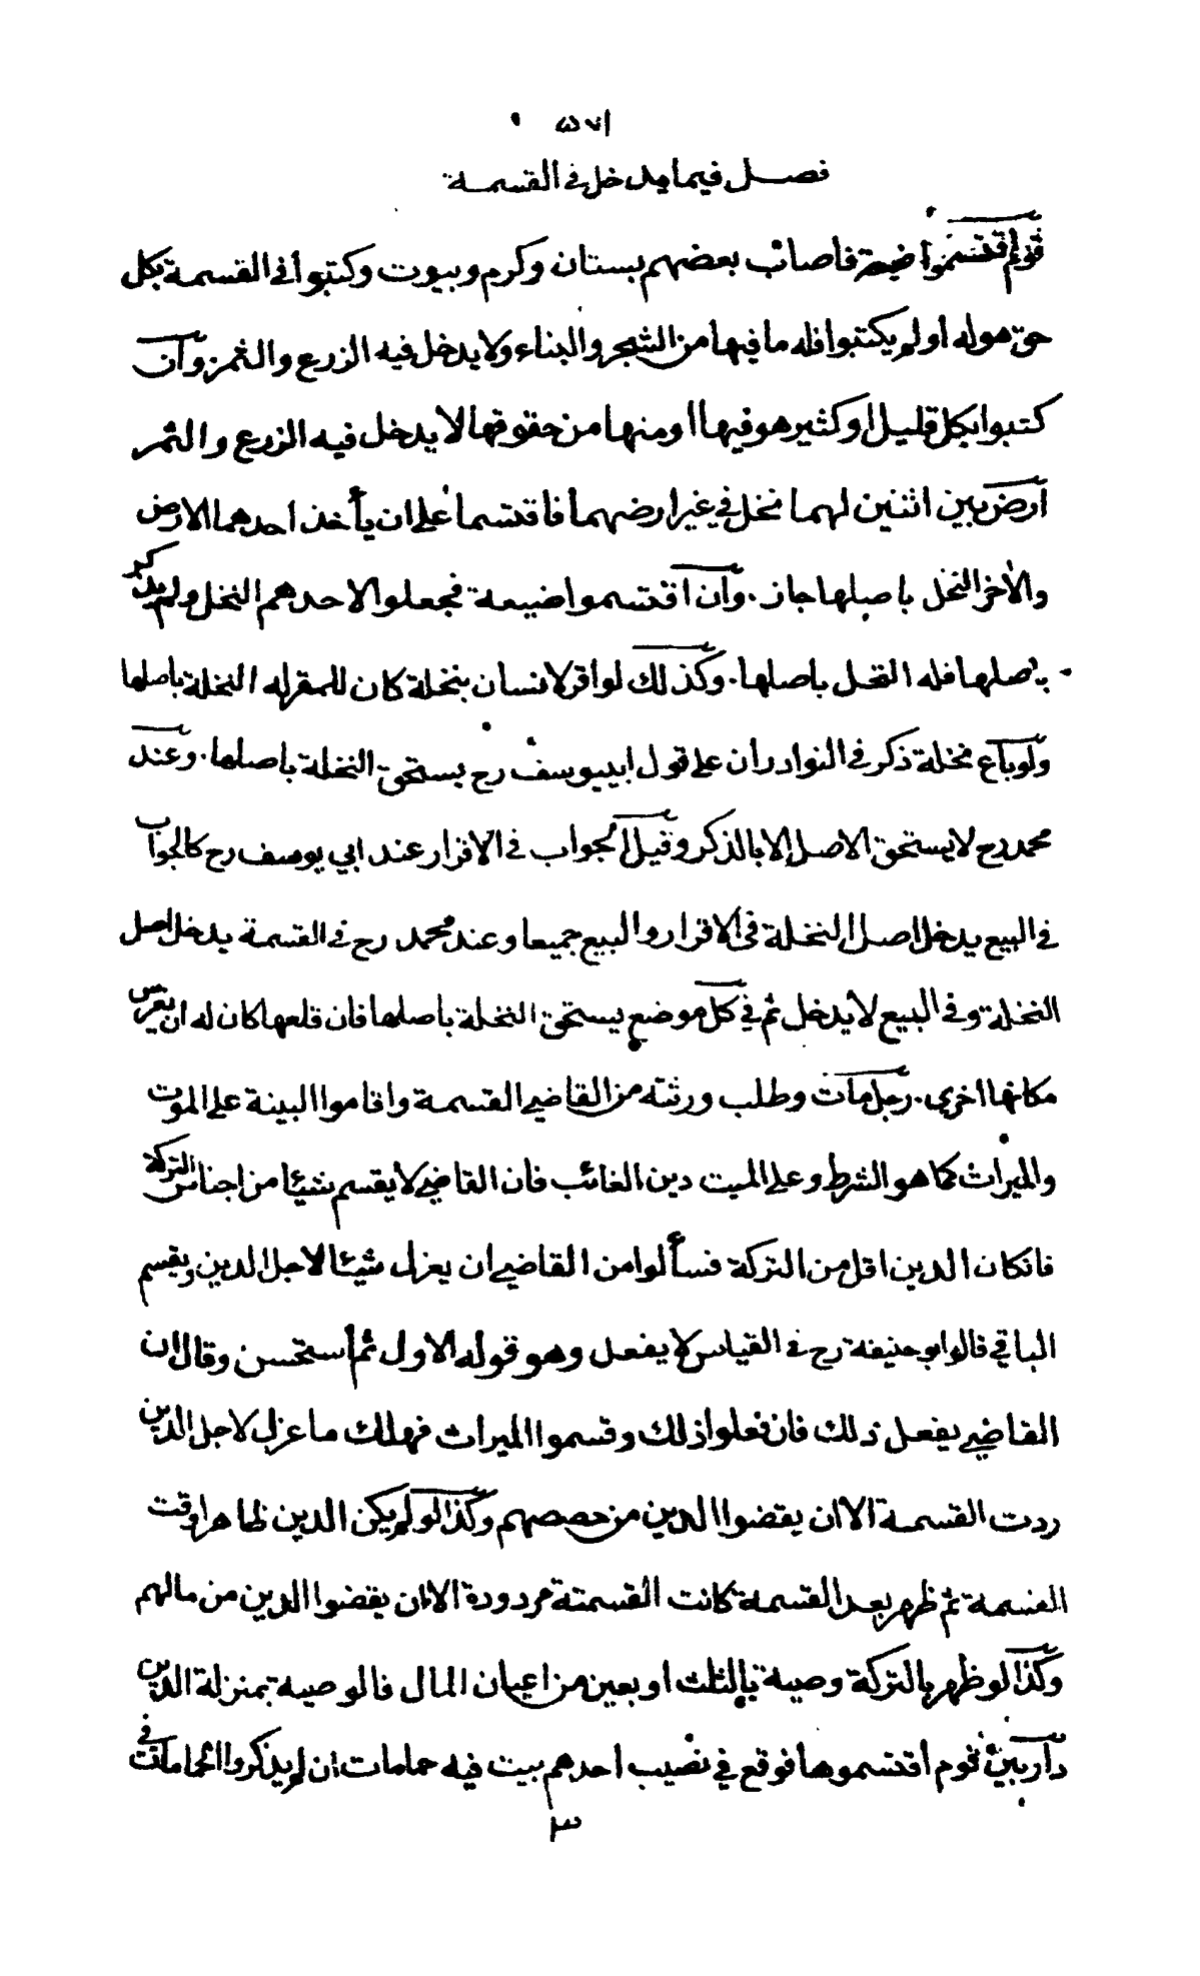 ٥٧١
فصل فيما يدخل في القسمة
قوم اقتسموا ضيعة فاصاب بعضهم بستان وكرم وبيوت وكتبوا في القسمة بكل
حق هو له او لم يكتبوا فله ما فيها من الشجر والبناء ولا يدخل فيه الزرع والثمر وان
كتبوا بكل قليل او كثير هو فيها او منها من حقوقها لا يدخل فيه الزرع والثمر
ارض بين اثنين لهما نخل في غير ارضهما فاقتسما على ان يأخذ احدهما الارض
والأخر النخل باصلها جاز . وان اقتسموا ضيعة فجعلوا لاحدهم النخل ولم يذكر
باصلها فله النخل باصلها . وكذلك لو اقر لانسان بنخلة كان للمقر له النخلة باصلها
ولو باع نخلة ذكر في النوادر ان على قول ابيوسف رح يستحق النخلة باصلها . وعند
محمد رح لا يستحق الاصل إلا بالذكر وقيل الجواب في الاقرار عند ابي يوسف رح كالجواب
في البيع يدخل اصل النخلة في الاقرار والبيع جميعا وعند محمد رح في القسمة يدخل اصل
النخلة وفي البيع لا يدخل ثم في كل موضع يستحق النخلة باصلها فان قلعها كان له ان يغرس
مكانها اخرى . رجل مات وطلب ورثته من القاضي القسمة واقاموا البينة على الموت
والميراث كما هو الشرط وعلى الميت دين الغائب فان القاضي لا يقسم شيئا من اجناس التركة
فانكان الدين اقل من التركة فسألوا من القاضي ان يعزل شيئا لاجل الدين ويقسم
الباقي قالوا ابو حنيفة رح في القياس لا يفعل وهو قوله الاول ثم أستحسن وقال ان
القاضي يفعل ذلك فان فعلوا ذلك وقسموا الميراث فهلك ما عزل لاجل الدين
ردت القسمة الا ان يقضوا الدين من حصصهم وكذا لو لم يكن الدين ظاهرا وقت
القسمة ثم ظهر بعد القسمة كانت القسمتة مردودة الا ان يقضوا الدين من مالهم
وكذا لو ظهر بالتركة وصية بالثلث او بعين من اعيان المال فالوصية بمنزلة الدين
دار بين قوم اقتسموها فوقع في نصيب احدهم بيت فيه حمامات ان لم يذكروا الحمامات في
٣